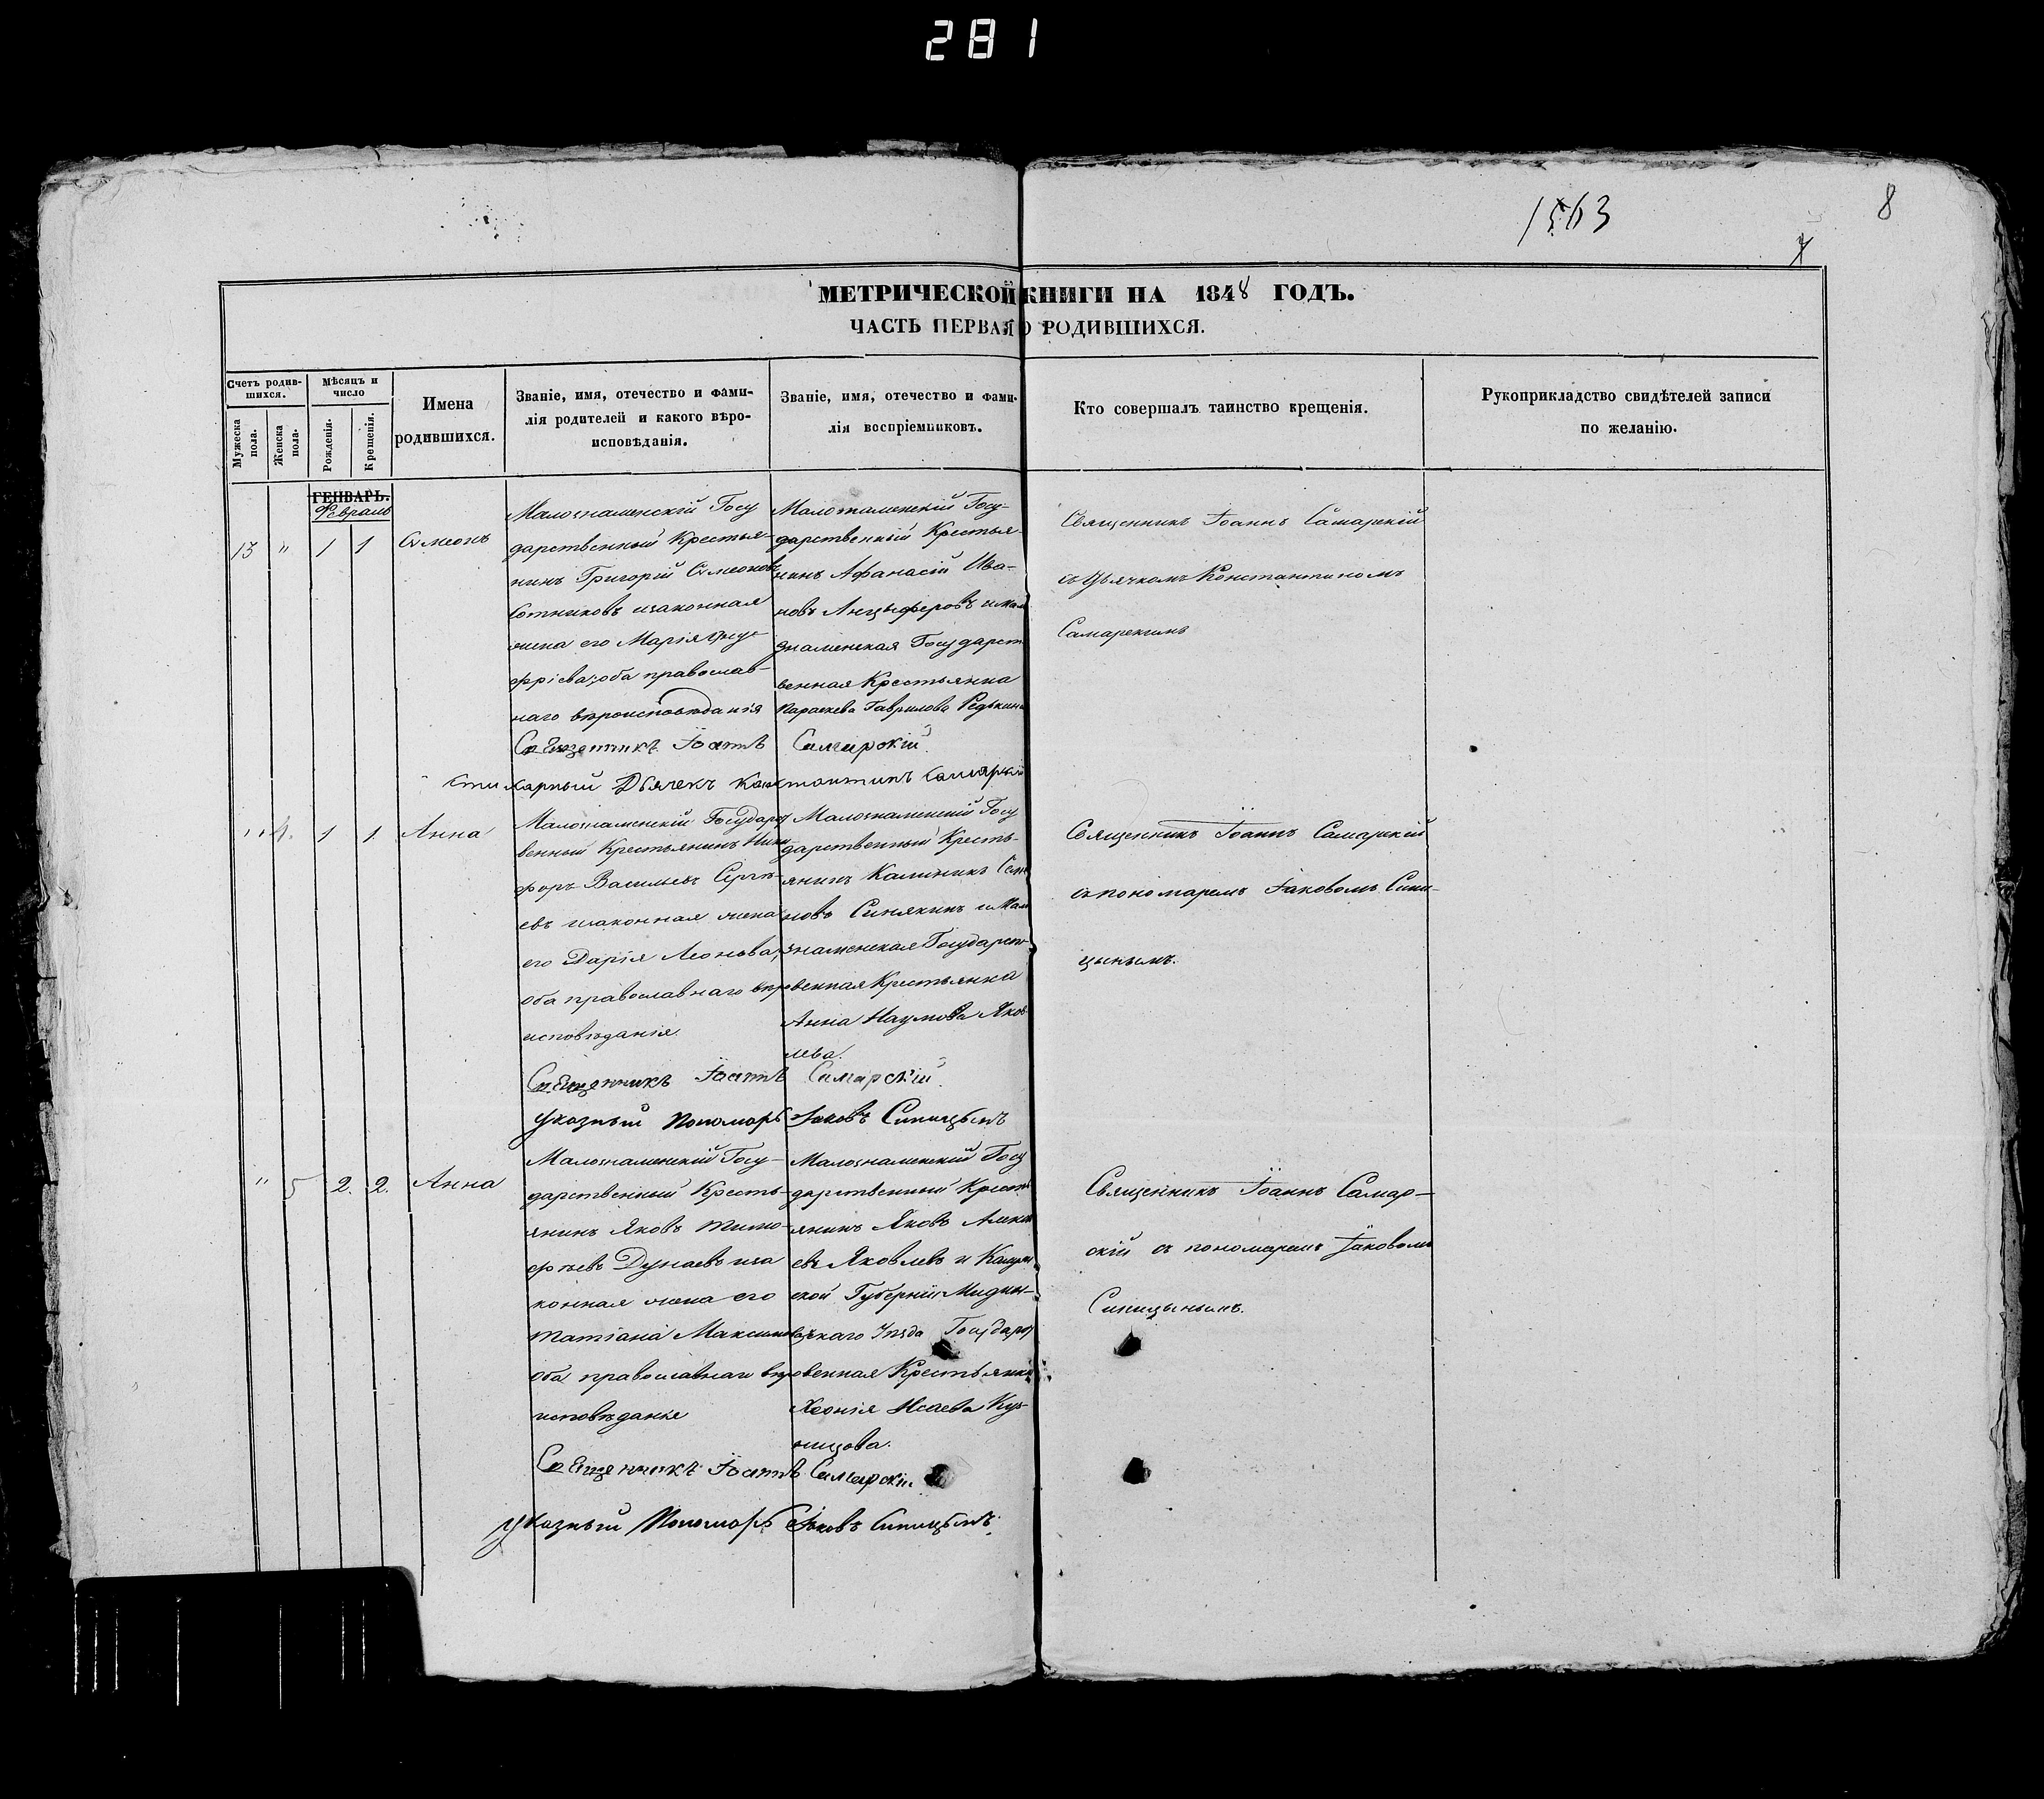 281
1563
8
7
МЕТРИЧЕСКОЙ КНИГИ НА 1848 ГОДЪ.
ЧАСТЬ ПЕРВАЯ О РОДИВШИХСЯ.
Счетъ родив-
шихся.
Мужеска
пола.
Женска
пола.
Мѣсяцъ и
число
Рожденія.
Крещенія.
Имена
родившихся.
Званіе, имя, отечество и фами-
лія родителей и какого вѣро-
исповѣданія.
Званіе, имя, отечество и фами-
лія воспріемниковъ.
Кто совершалъ таинство крещенія.
Рукоприкладство свидѣтелей записи
по желанію.
ГЕНВАРЬ.
Февраль
13 " 1 1 Сѵмеонъ
Малознаменскій Госу
дарственный Крестья-
нинъ Григорій Сѵмеоновъ
Сотниковъ изаконная
жена его Марія
фріева, оба православ-
наго вѣроисповѣданія
Малознаменскій Госу-
дарственный Крестья-
нинъ Афанасій Ива-
новъ Анцыферовъ имало
знаменская Государст
венная Крестьянка
Параскева Гаврилова Редькина
Священникъ Іоаннъ Самарскій
съ Дьячкомъ Константиномъ
Самарскимъ
Священникъ Іоаннъ Самарскій.
Стихарный Дьячекъ Константинъ Самарскій
" 4. 1 1 Анна
Малознаменскій Государст
венный Крестьянинъ Ники
форъ Васильевъ Сергѣ-
евъ изаконная жена
его Дарія Леонова,
оба православнаго вѣро
исповѣданія
Малознаменскій Госу
дарственный Кресть-
янинъ Калиникъ Семе
новъ Синякинъ и Мало
знаменская Государст-
венная Крестьянка
Анна Наумова Яков
лева.
Священникъ Іоаннъ Самарскій
съ пономаремъ Іаковомъ Сини-
цынымъ.
Священникъ Іоаннъ Самарскій.
Указный Пономарь Іаковъ Синицынъ
" 5 2. 2. Анна
Малознаменскій Госу-
дарственный Кресть-
янинъ Яковъ Тимо-
фѣевъ Дунаевъ иза
конная жена его
Татіана Максимова
оба православнаго вѣро
исповѣданіе
Малознаменскій Госу
дарственный Кресть
янинъ Яковъ Алексѣ
евъ Яковлевъ и Калуж
ской Губерніи Медын-
скаго Уѣзда Государст
венная Крестьянка
Хеонія Исаева Куз-
нецова.
Священникъ Іоаннъ Самар-
скій съ пономаремъ Іаковомъ
Синицынымъ.
Священникъ Іоаннъ Самарскій
Указный Пономарь Іаковъ Синицынъ.